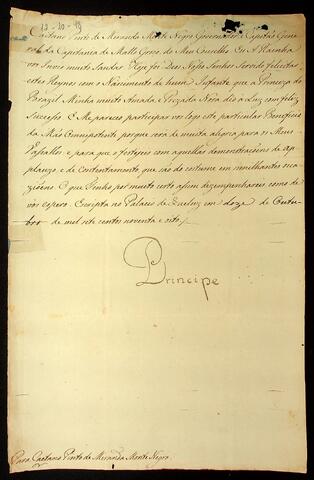 12-10-98
Caetano Pinto de Miranda Monte Negro Governador e Capitaõ Gene
ral da Capitania de Matto Grosso do Meu Concelho. Eu a Rainha
vos Invio muito Saudar. Hoje foi Deos Nosso Senhor Servido felicitar
estes Reynos com o Nascimento de hum Infante que a Princeza do
Brazil Minha muito Amada e Prezada Nora dio a Luz com feliz
Successo. E Me pareceo participar vos logo este particular Beneficio
da Maõ Omnipotente porque será de muita alegria para os Meus
Vassallos e para que o festejeis com aquellas demonstraciõens de Ap
plauzo e de Contentamento, que saõ do costume em similhantes oca
ziõens. O que Tenho por muito certo assim dezempenhareis como de
vós espero. Escripta no Palacio de Queluz em doze de Outu
bro de mil sete centos noventa e oito,
Principe
Para Caetano Pinto de Miranda Monte Negro.